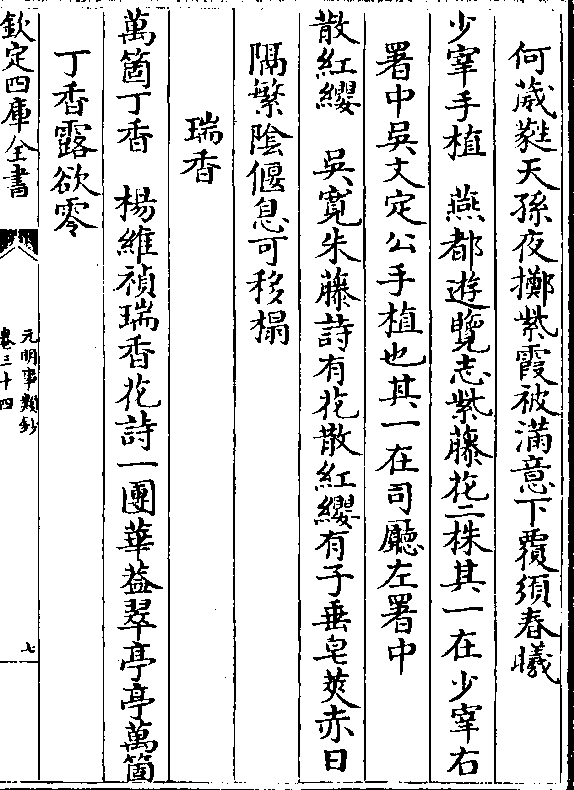 何葳蕤天孫夜擲紫霞被滿意下覆須春曦
少宰手植　燕都遊覽志紫藤花二株其一在少宰右
署中吳文定公手植也其一在司廳左署中
散紅纓　吳寬朱藤詩有花散紅纓有子垂皂莢赤日
隔繁陰偃息可移榻
瑞香
萬箇丁香　楊維禎瑞香花詩一團華葢翠亭亭萬箇
丁香露欲零
欽定四庫全書
元明事類鈔
卷三十四
七